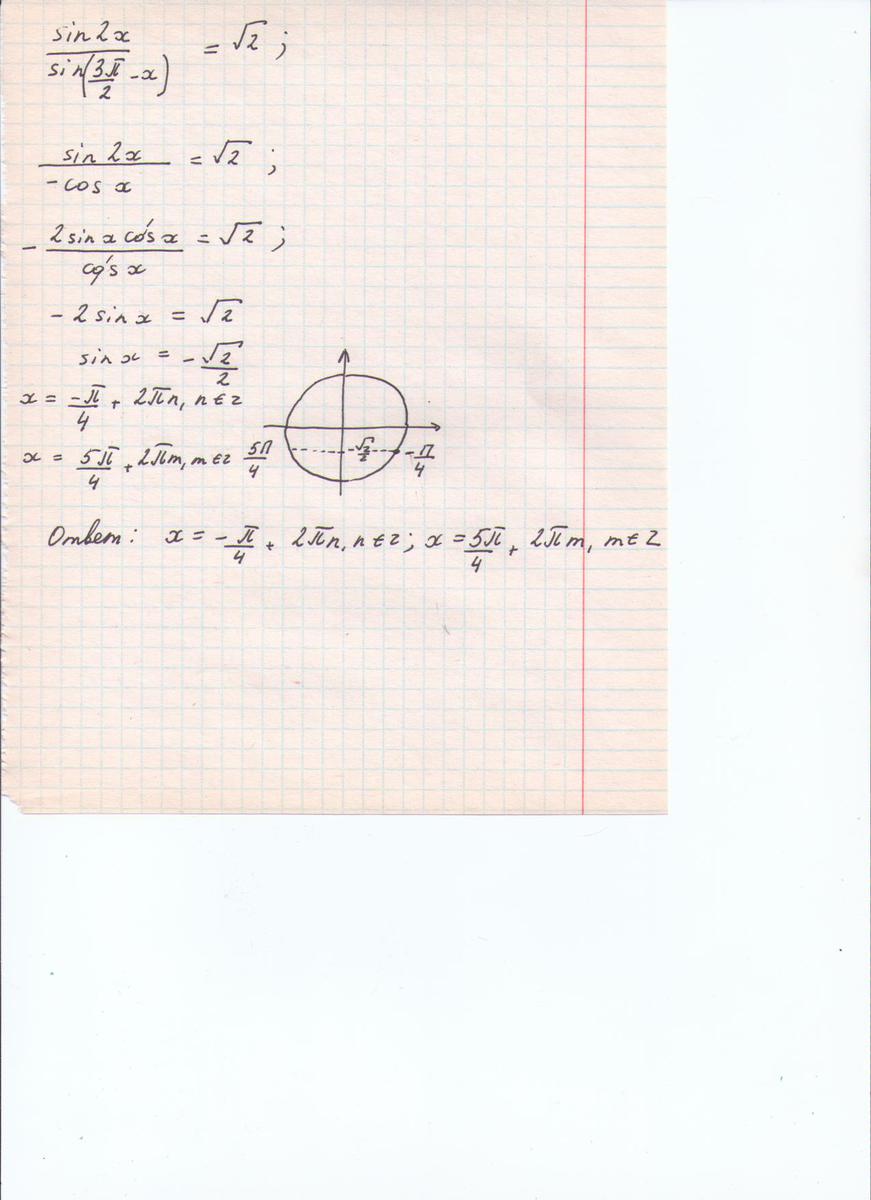 sin 2x / sin(3π/2 - x) = √2 ;
sin 2x / -cos x = √2 ;
- 2 sin x cos x / cos x = √2 ;
- 2 sin x = √2
sin x = - √2/2
x = -π/4 + 2πn, n ∈ z
x = 5π/4 + 2πm, m ∈ z
5π/4 √2/2 -π/4
Ответ: x = - π/4 + 2πn, n ∈ z; x = 5π/4 + 2πm, m ∈ Z